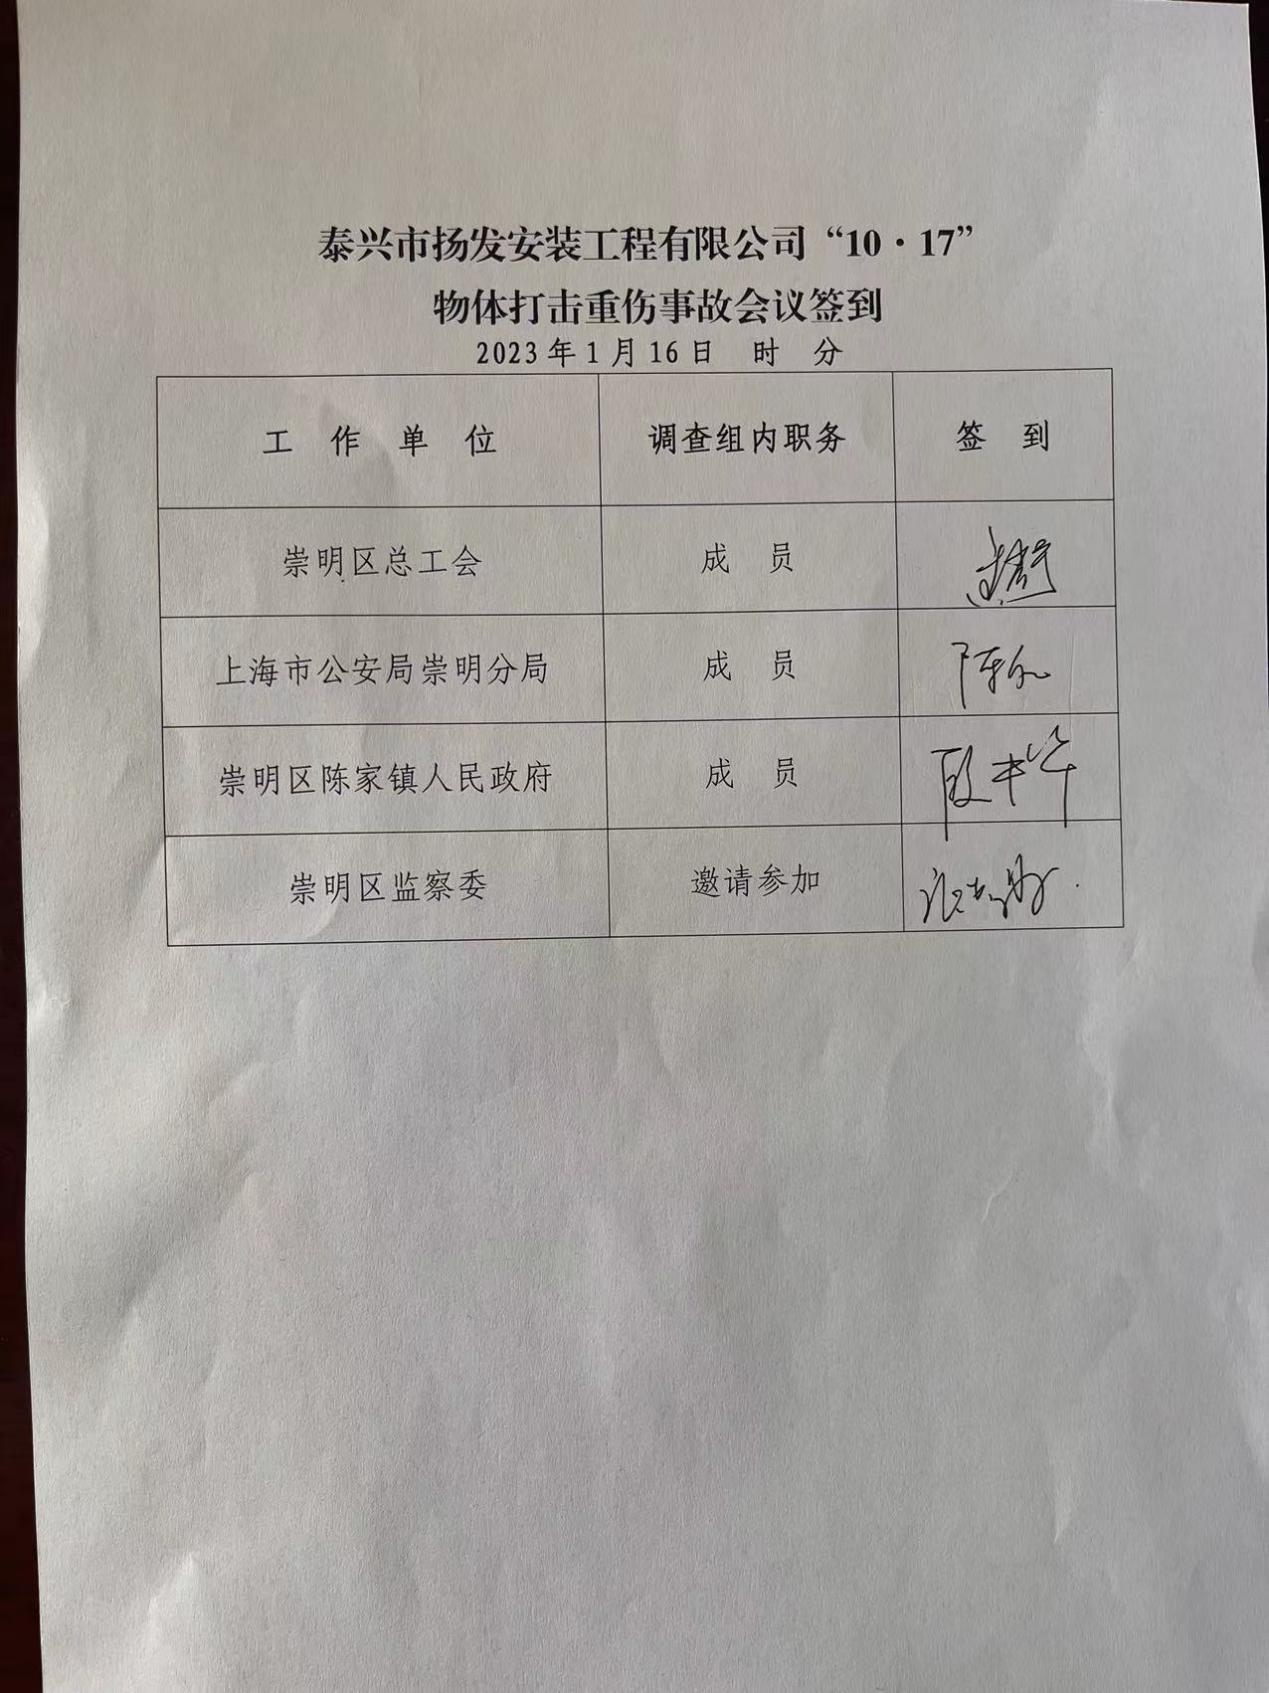 泰兴市扬发安装工程有限公司“10·17”
物体打击重伤事故会议签到
2023年1月16日 时 分
工作单位 调查组内职务 签到
崇明区总工会 成员
上海市公安局崇明分局 成员 陈
崇明区陈家镇人民政府 成员
崇明区监察委 邀请参加